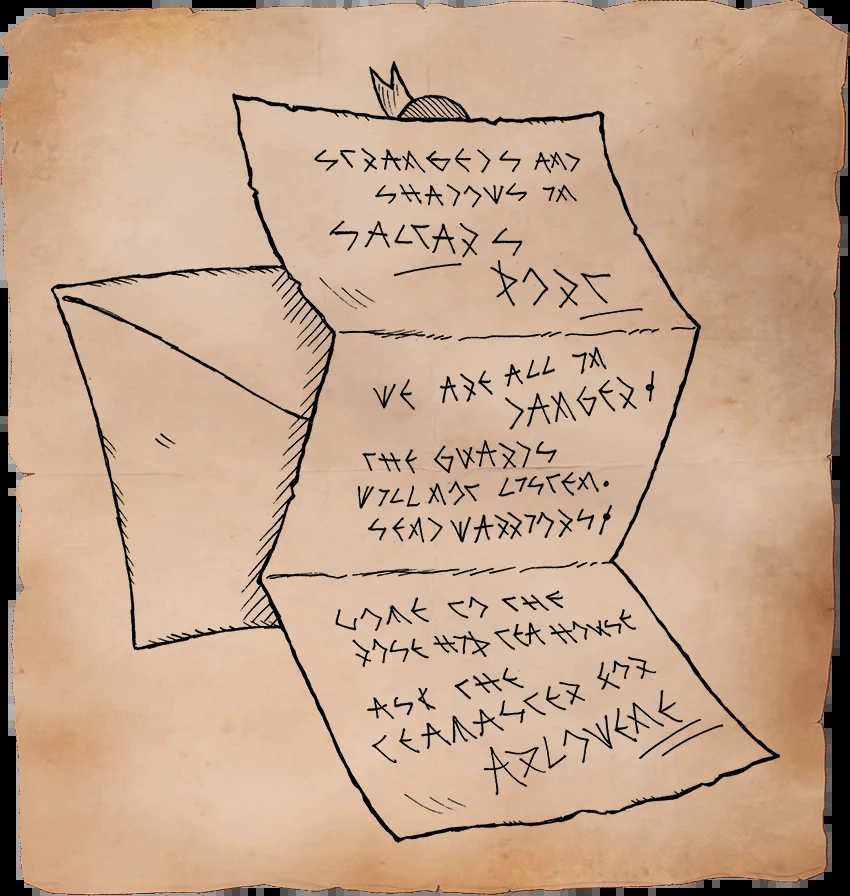 STRANGERS AND
SHADOWS IN
SALTARS
PORT
WE ARE ALL IN
DANGER!
THE GUARDS
WILL NOT LISTEN.
SEND WARRIORS!
COME TO THE
ROSE HIP TEA HOUSE
ASK THE
TEAMASTER FOR
ARLOVENE